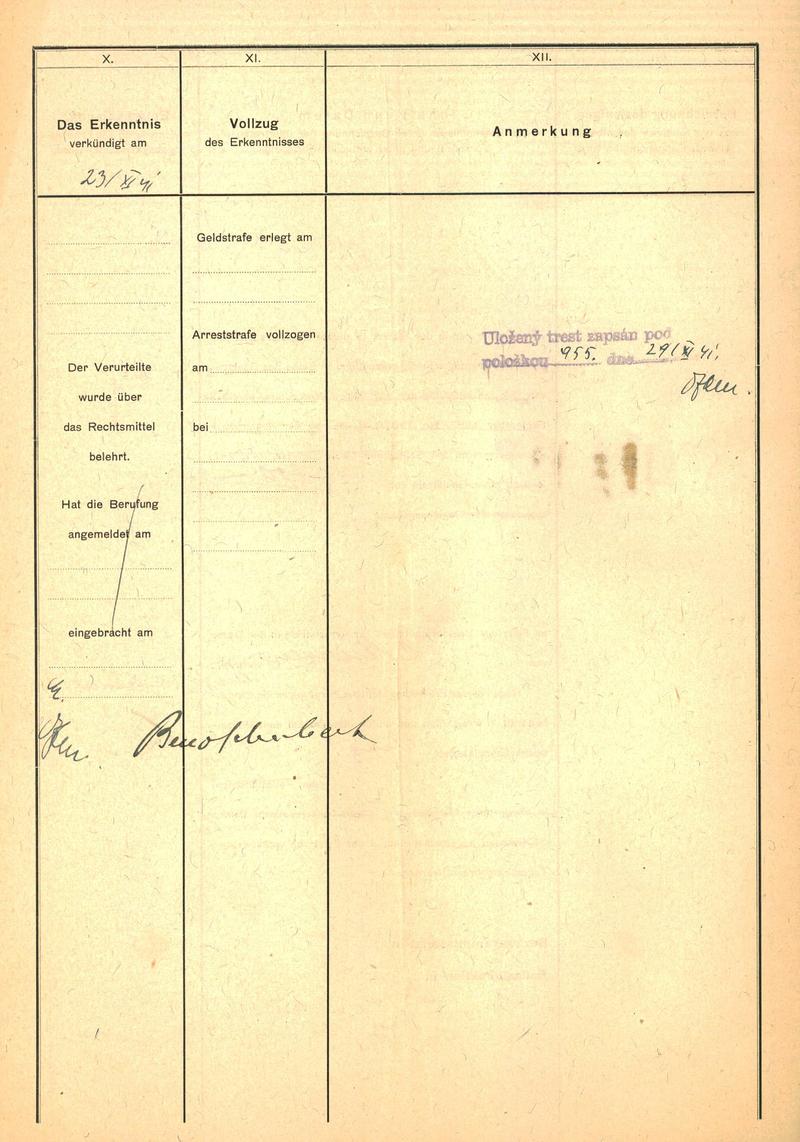 X.
Das Erkenntnis
verkündigt am
23/XI 41
Der Verurteilte
wurde über
das Rechtsmittel
belehrt.
Hat die Berufung
angemeldet am
eingebracht am
XI.
Vollzug
des Erkenntnisses
Geldstrafe erlegt am
Arreststrafe vollzogen
am
bei
XII.
Anmerkung
Uložený trest zapsán pod
položkou 955. dne 29/XI 41.